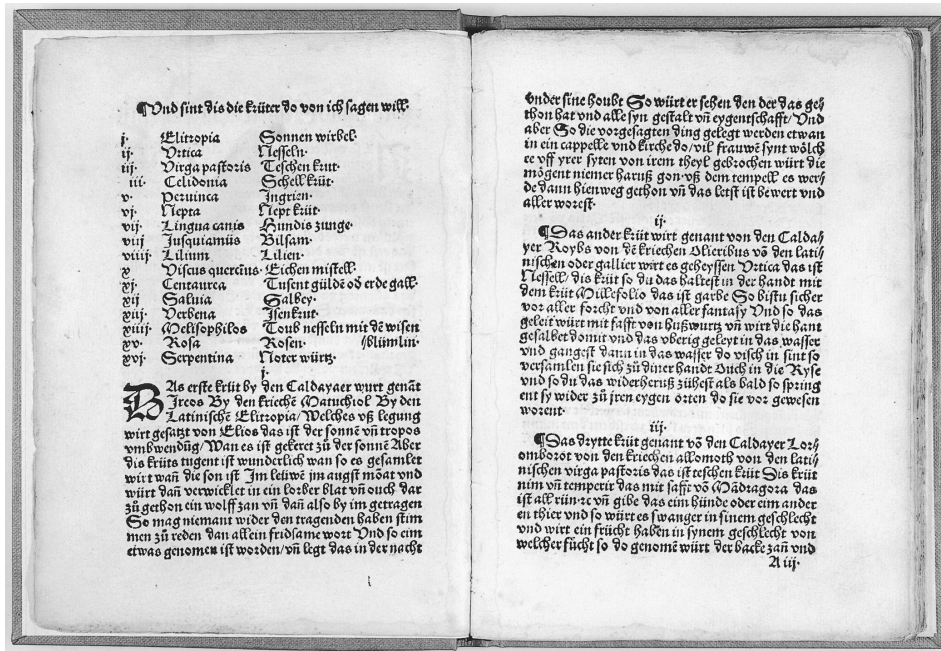 ¶Vnd sint dis die krüter do von ich sagen will·
j· Elitropia Sonnen wirbel·
ij· Vrtica Nesseln·
iij· Virga pastoris Teschen krut·
iii· Celidonia Schell krüt·
v· Peruinca Ingrien·
vj· Nepta Nept krüt·
vij· Lingua canis Hundis zunge·
viij Jusquiamüs Bilsam·
viiij· Lilium Lilien·
x Viscus quercūs· Eichen mistell·
xj· Centaurea Tusent güldē od erde gall·
xij Saluia Salbey·
xiij· Verbena Isenkrut·
xiiij· Melisophilos Toub nesseln mit dē wisen
xv· Rosa Rosen· blümlin·
xvj· Serpentina Noter würtz·
j·
DAs erste krüt by den Caldayaer wurt genāt
Ircos By den kriechē Matuchiol By den
Latinischē Elitropia/Welches vß legung
wirt gesatzt von Elios das ist der sonnē vn̄ tropos
vmbwendūg/Wan es ist gekeret zu der sonnē Aber
dis krüts tugent ist wunderlich wan so es gesamlet
wirt wan̄ die son ist Jm leüwē jm augst mōat vnd
würt dan̄ verwicklet in ein lorber blat vn̄ ouch dar
zů gethon ein wolff zan vn̄ dan̄ also by im getragen
So mag niemant wider den tragenden haben stim
men zů reden dan allein fridsame wort Vnd so eim
etwas genomen ist worden/vn̄ legt das in der nacht
vnder sine houbt So würt er sehen den der das ge⸗
thon hat vnd alle syn gestalt vn̄ eygentschafft/Vnd
aber So die vorgesagten ding gelegt werden etwan
in ein cappelle vnd kirche do/vil frauwē synt wölch
ee vff yrer syten von irem theyl gebrochen würt die
mögent niemer haruß gon·vß dem tempell es wer⸗
de dann hienweg gethon vn̄ das letst ist bewert vnd
aller worest·
ij·
¶Das ander krüt wirt genant von den Calda⸗
yer Roybs von dē kriechen Olieribus vō den lati⸗
nischen oder gallier wirt es geheyssen Vrtica das ist
Nessell/dis krüt so du das haltest in der handt mit
dem krüt Millefolio das ist garbe So bistu sicher
vor aller forcht vnd von aller fantasy Vnd so das
geleit würt mit safft von hußwurtz vn̄ wirt die hant
gesalbet domit vnd das vberig geleyt in das wasser
vnd gangest dann in das wasser do visch in sint so
versamlen sie sich zů diner handt Ouch in die Ryse
vnd so du das widerheruß zühest als bald so spring
ent sy wider zů jren eygen örten do sie vor gewesen
worent·
iij·
¶Das drytte krüt genant vō den Caldayer Lor⸗
omborot von den kriechen allomoth von den lati⸗
nischen virga pastoris das ist teschen krüt Dis krüt
nim vn̄ temperir das mit safft vō Mādragora das
ist all rün·rc vn̄ gibe das eim hünde oder eim ander
en thier vnd so würt es swanger in sinem geschlecht
vnd wirt ein frücht haben in synem geschlecht von
welcher fücht so do genomē würt der backe zan̄ vnd
A iij·